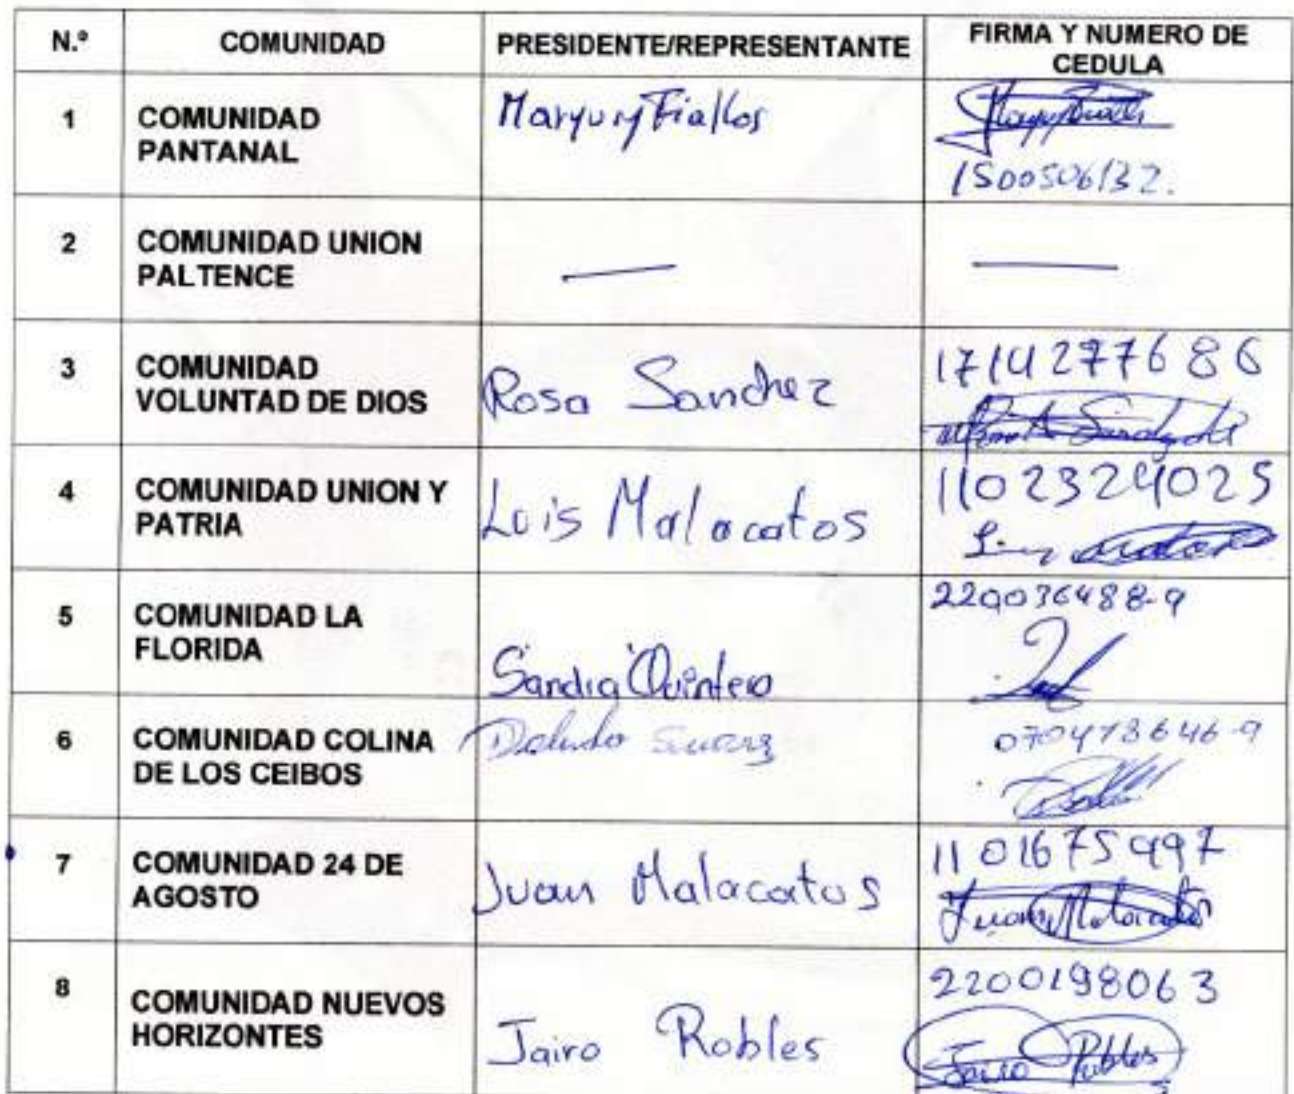 N.º COMUNIDAD PRESIDENTE/REPRESENTANTE FIRMA Y NUMERO DE
CEDULA
1 COMUNIDAD
PANTANAL
Maryury Fiallos
1500506132.
2 COMUNIDAD UNION
PALTENCE
3 COMUNIDAD
VOLUNTAD DE DIOS
Rosa Sanchez
1714277686
4 COMUNIDAD UNION Y
PATRIA
Luis Malacatos
1102324025
5 COMUNIDAD LA
FLORIDA
Sandra Quintero
220036488-9
6 COMUNIDAD COLINA
DE LOS CEIBOS
070473646-9
7 COMUNIDAD 24 DE
AGOSTO
Juan Malacatos
1101675997
Juan Malacatos
8 COMUNIDAD NUEVOS
HORIZONTES
Jairo Robles
2200198063
Jairo Robles